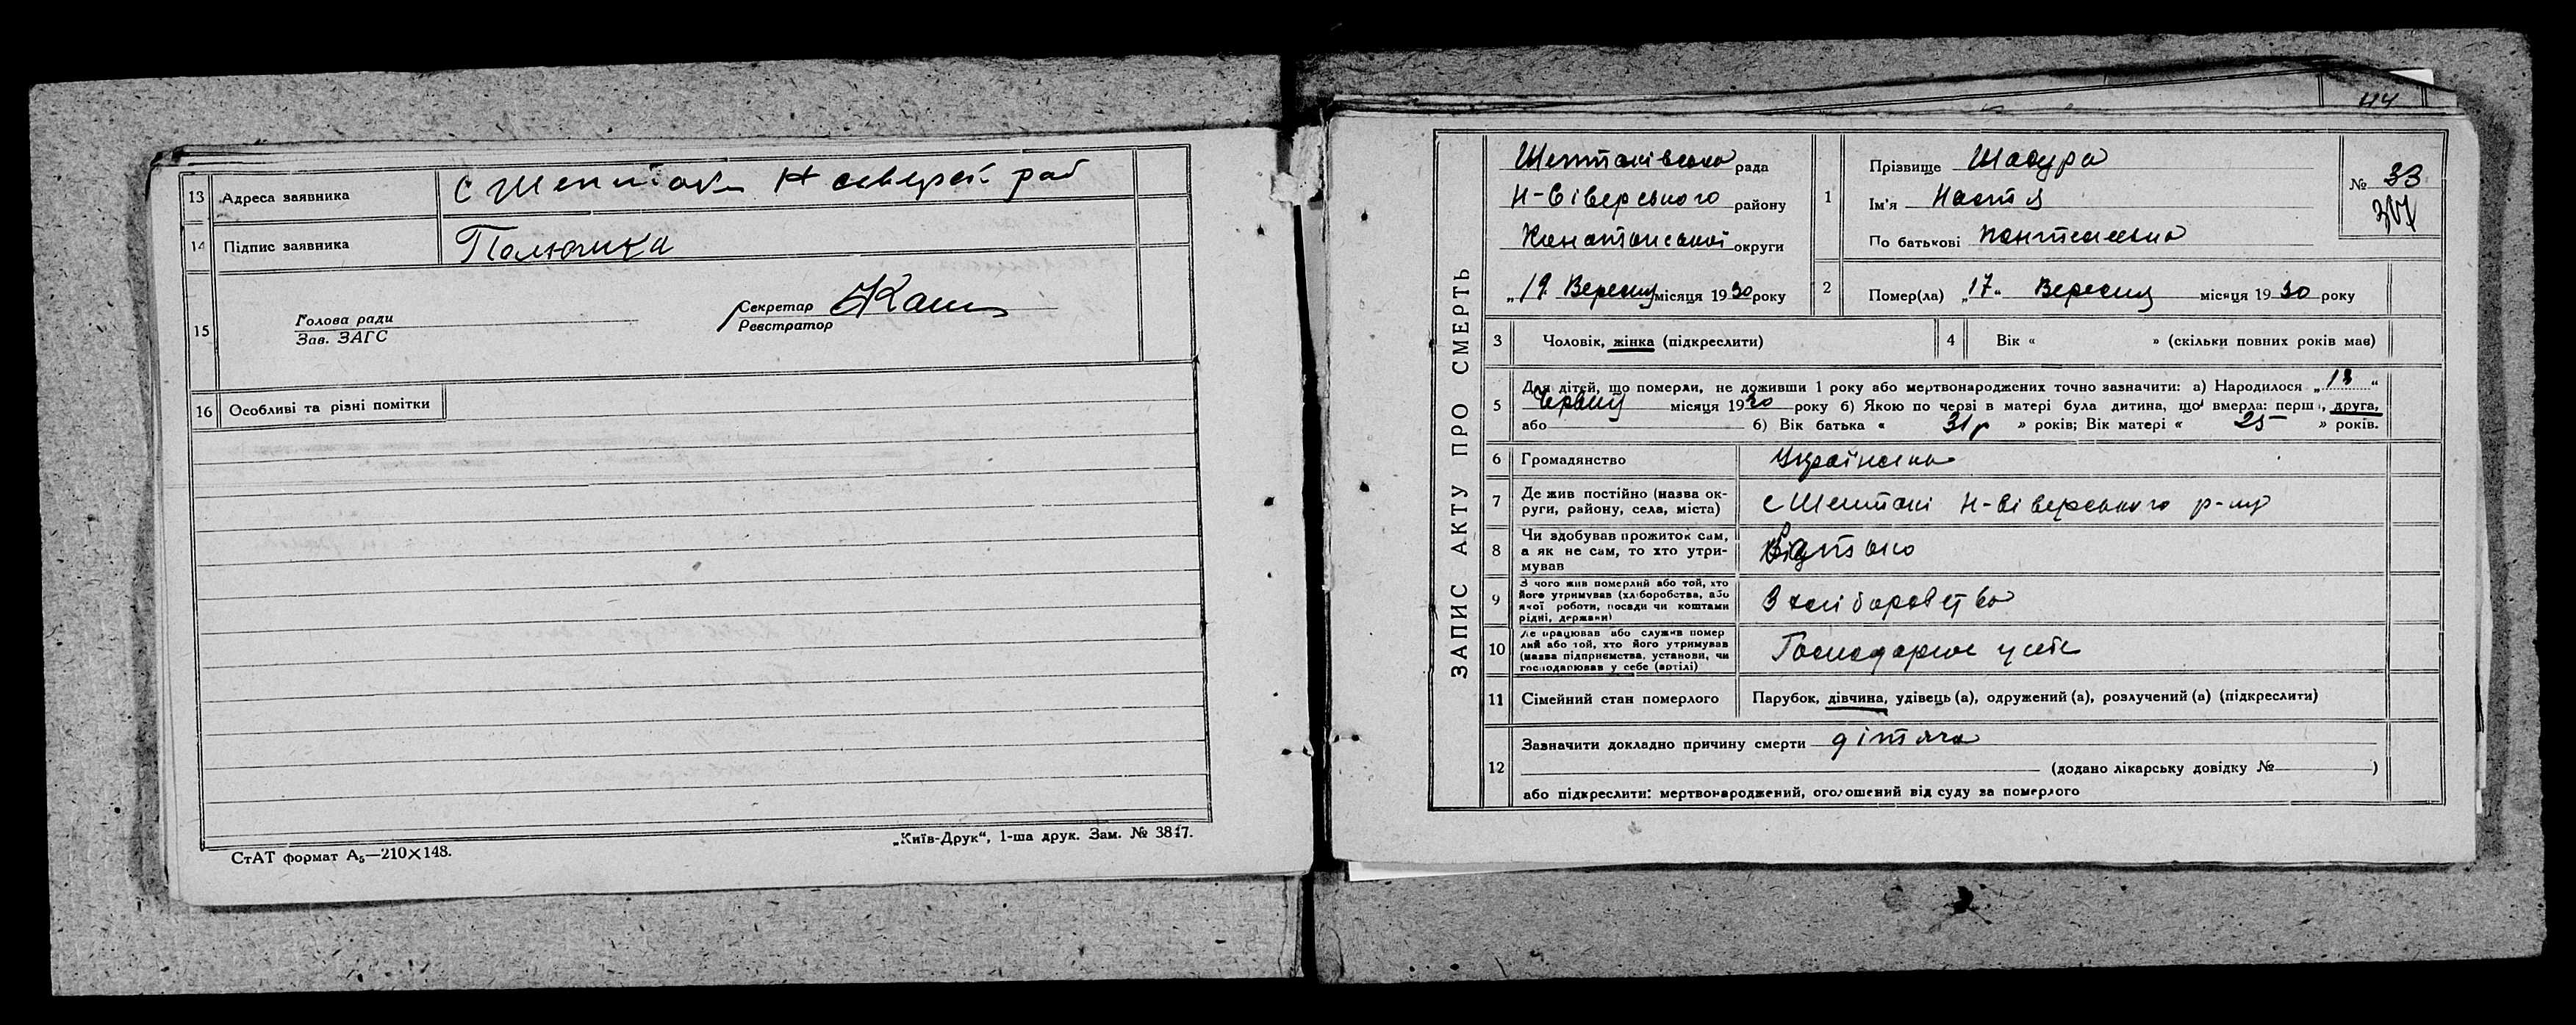 13 Адреса заявника с Шептаки Н сіверск. рай
14 Підпис заявника
15 Голова ради
Зав. ЗАГС
Секретар
Реєстратор
16 Особливі та різні помітки
СтАТ формат А₅—210×148.
„Київ-Друк“, 1-ша друк. Зам. № 3817.
44
ЗАПИС АКТУ ПРО СМЕРТЬ
Шептаківська рада
Н-Сіверського району
Конотопської округи
„19 Вересня місяця 1930 року
1 Прізвище
Ім'я Настя
По батькові
№ 33
307
2 Помер(ла) „17“ Вересня місяця 1930 року
3 Чоловік, жінка (підкреслити)
4 Вік « » (скільки повних років мав)
5 Для дітей, що померли, не доживши 1 року або мертвонароджених точно зазначити: а) Народилося „13“
Червня місяця 1930 року б) Якою по черзі в матері була дитина, що вмерла: перша, друга,
або б) Вік батька « 31 р » років; Вік матері « 25 » років.
6 Громадянство Українська
7 Де жив постійно (назва ок-
руги, району, села, міста) с Шептаки Н-Сіверського р-ну
8 Чи здобував прожиток сам,
а як не сам, то хто утри-
мував
9 З чого жив померлий або той, хто
його утримував (хліборобства, або
якої роботи, посади чи коштами
рідні, держави) З хліборобства
10 Де працював або служив помер
лий або той, хто його утримував
(назва підприємства, установи, чи
господарював у себе (артілі) Господарює у себе
11 Сімейний стан померлого Парубок, дівчина, удівець (а), одружений (а), розлучений (а) (підкреслити)
12 Зазначити докладно причину смерти дітяча
(додано лікарську довідку № )
або підкреслити: мертвонароджений, оголошений від суду за померлого